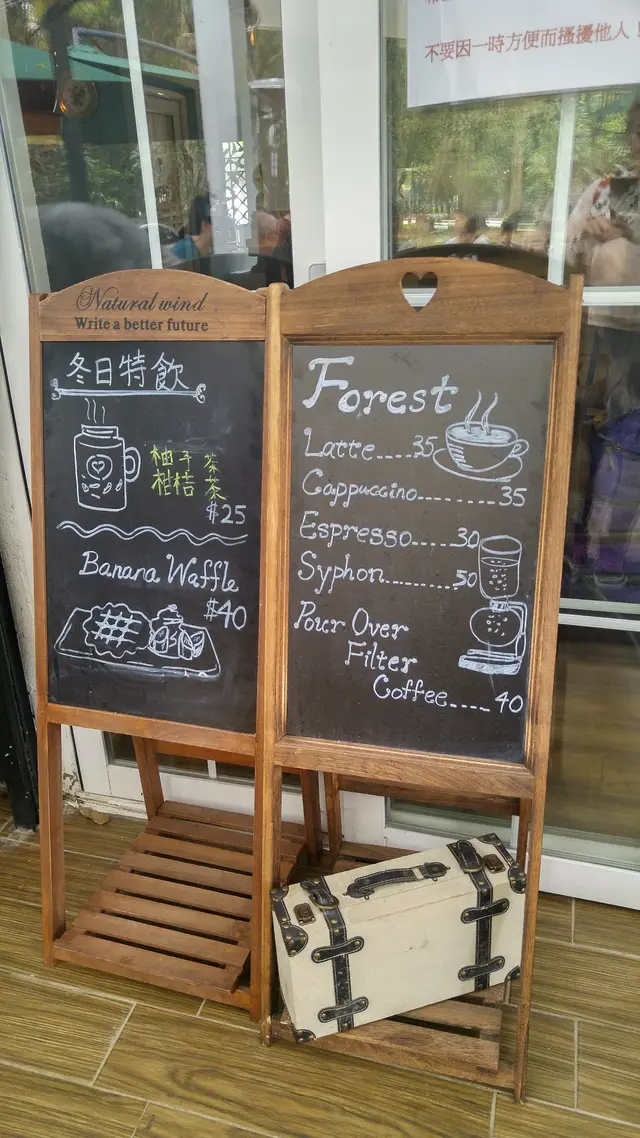 不要因一時方便而搔擾他人!
Natural wind
Write a better future
冬日特飲
柚子茶
柑桔茶
$25
Banana Waffle
$40
Forest
Latte....35
Cappuccino..........35
Espresso.....30
Syphon.........50
Pour Over
Filter
Coffee....40